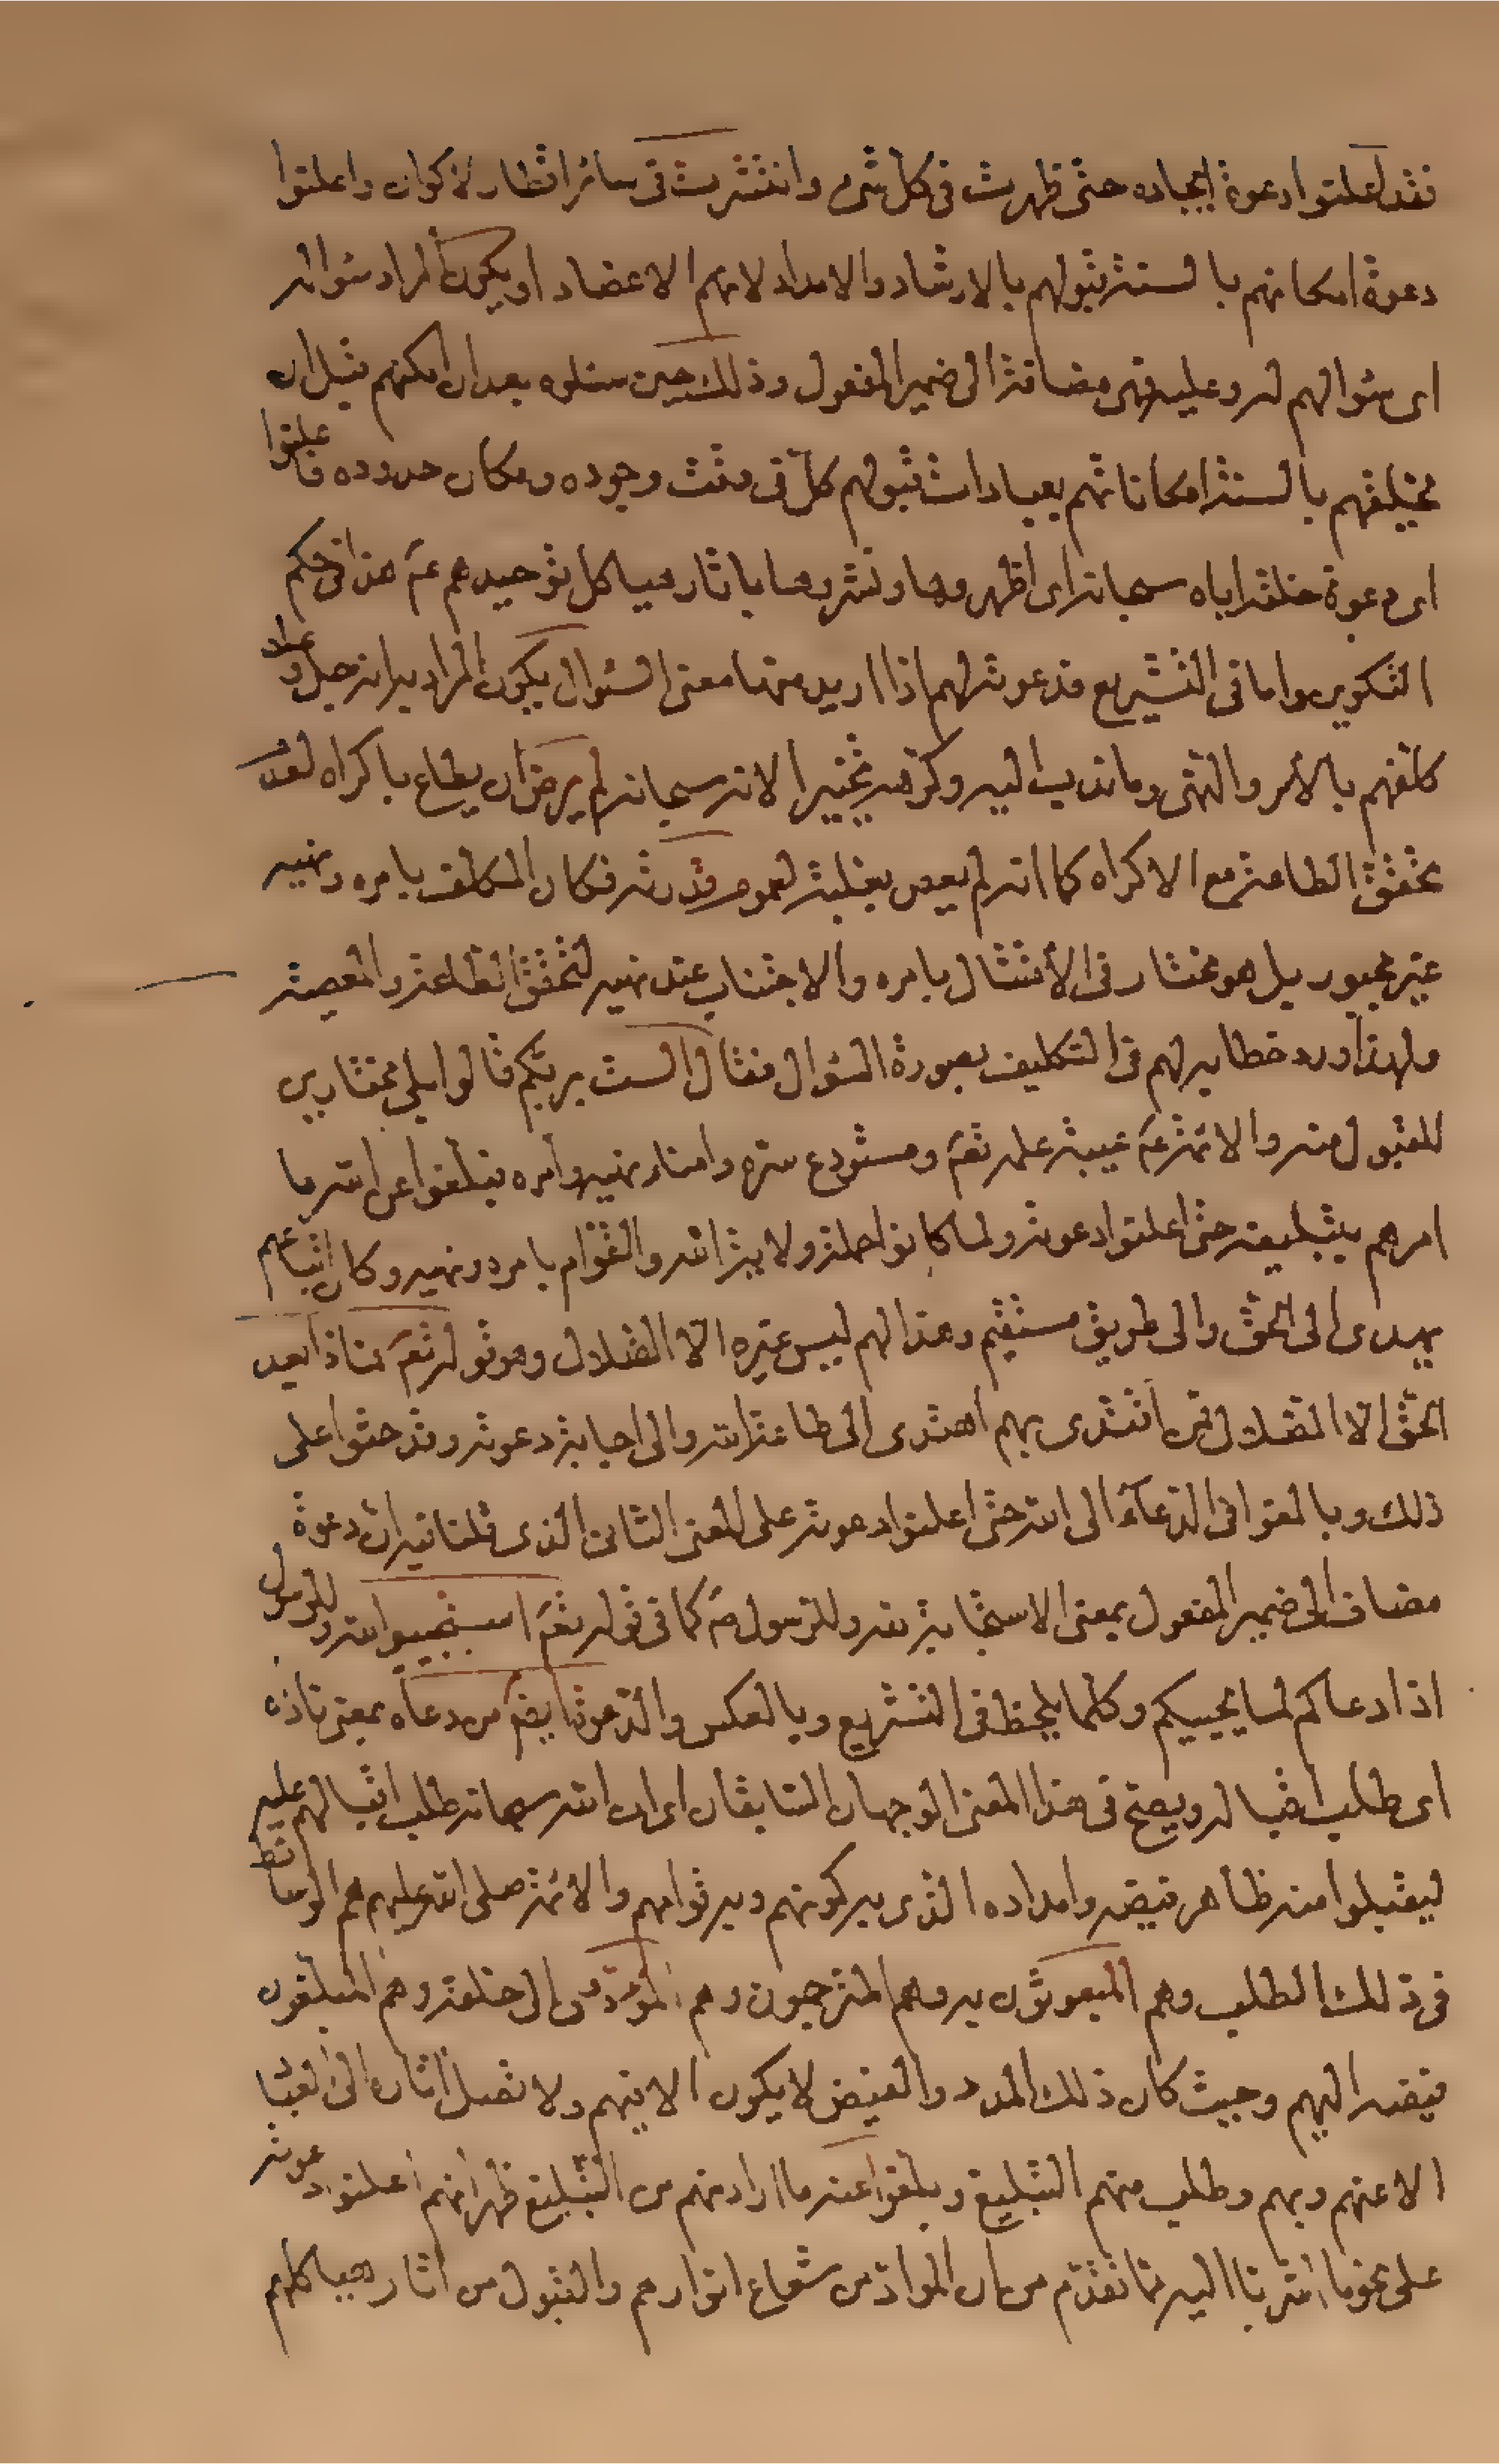 فقد اعلنوا دعوة ايجاده حتى ظهرت في كل شيء وانتشرت في سائر اقطار الاكوان واعلنوا
دعوة امكانهم بالسنة قبولهم بالارشاد والامداد لانهم الاعضاد او يكون المراد سؤاله
اى سؤالهم له وعليه فهى مضافة الى ضمير المفعول وذلك حين سئلوه بعد ان امكنهم قبل ان
يخلقهم بالسنة امكاناتهم بعبارات قبولهم كل في وقت وجوده ومكان حدوده فاعلنوا
اى دعوة خلقه اياه سبحانه اى اظهروها ونشروها باثار هياكل توحيدهم عم هذا في حكم
التكوين واما في التشريع فدعوته لهم اذا اريد منها معنى السؤال يكون المراد به انه جل وعلا
كلفهم بالأمر والنهى وما ندب اليه وكرهه تخييرا لانه سبحانه لم يرض ان يطاع باكراه لعدم
تحقق الطاعة مع الاكراه كما انه لم يعص بغلبة لعموم قدرته فكان المكلف بامره ونهيه
غير مجبور بل هو مختار في الأمتثال بامره والاجتناب عند نهيه لتحقق الطاعة والمعصية
ولهذا ورد خطابه لهم في التكليف بصورة السؤال فقال الست بربكم قالوا بلى مختارين
للقبول منه والائمة عم عيبة علمه تعم ومستودع سره وامناء نهيه وامره فبلغوا عن الله ما
امرهم بتبليغه حتى اعلنوا دعوته ولما كانوا حملة ولاية الله والقوام بامره ونهيه وكان اتباعهم
يهدى الى الحق والى طريق مستقيم وهذا لهم ليس غيره الا الضلال وهو قوله تعم فماذا بعد
الحق الا الضلال فمن اقتدى بهم اهتدى الى طاعة الله والى اجابة دعوته وقد حثوا على
ذلك وبالغوا في الدعآء الى الله حتى اعلنوا دعوته على المعنى الثانى الذى قلنا فيه ان دعوة
مضاف الى ضمير المفعول بمعنى الاستجابة لله وللرسول ص كما في قوله تعم استجيبوا لله وللرسول
اذا دعاكم لما يحييكم وكلما يلحظ في التشريع وبالعكس والدعوة ايضم من دعاه بمعنى ناداه
اى طلب اقباله ويصح في هذا المعنى الوجهان السابقان اى ان الله سبحانه طلب اقبالهم عليه
ليقبلوا منه ظاهر فيضه وامداده الذى به كونهم وبه قوامهم والائمة صلى الله عليهم هم الوسائط
في ذلك الطلب وهم المبعوثون به وهم المترجمون وهم المؤدون الى خلقه وهم المبلغون
فيضه اليهم وحيث كان ذلك المدد والفيض لا يكون الا فيهم ولا تصل اثاره الى العباد
الا عنهم وبهم وطلب منهم التبليغ وبلغوا عنه ما اراد منهم من التبليغ ظهر انهم اعلنوا دعوته
على نحو ما اشرنا اليه مما تقدم من ان المواد من شعاع انوارهم والقبول من اثار هياكلهم